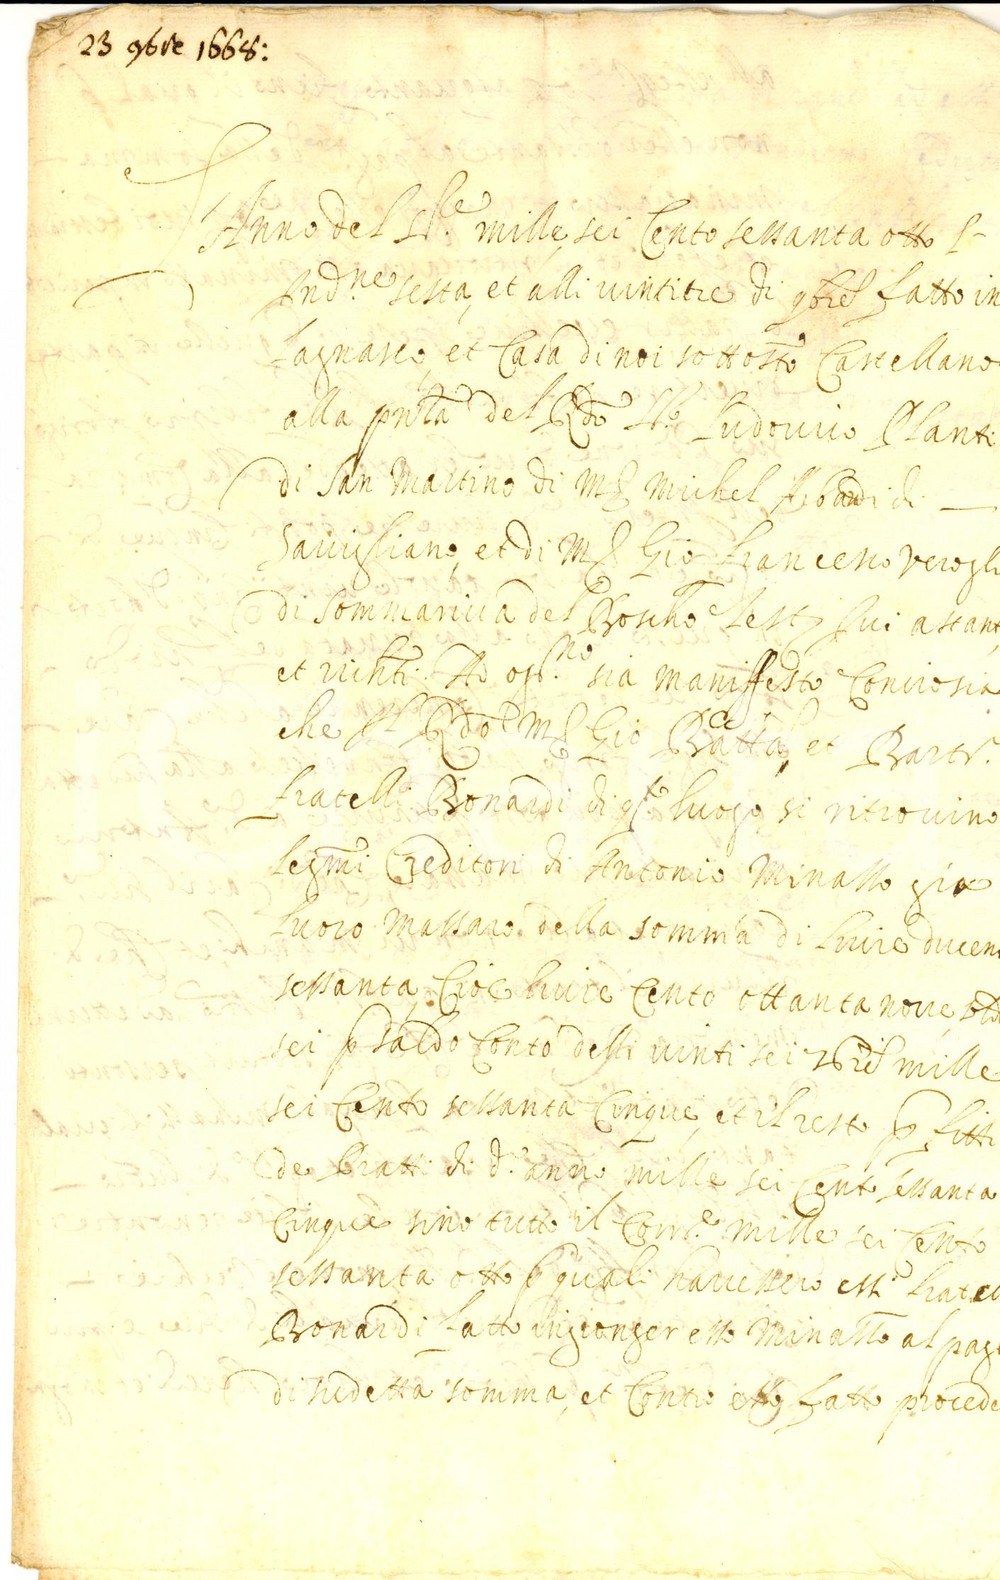 23 9bre 1668:
Anno del Sr.e mille sei Cento sessanta otto
Indne sesta, et alli vintitre di 9bre fatto in
Lagnasco, et Casa di noi sottostto Castellano
alla pnta del Rdo Sr. Ludovico
di San Martino di Mr Michel di
Savigliano, et di Mr Gio francesco
di Sommariva del Boscho astant
et richti. Ad ogn.no sia manifesto Conciosia
che il Rdo Mr Gio Batta, et Bart.
fratelli Bonardi di qto luogo si ritrovino
legmi Creditori di Antonio Minasso gia
luoro Massaro della somma di livre ducen
sessanta, Cioe livre Cento ottanta nove, soldi
sei p saldo Conto delli vinti sei mille
sei Cento sessanta Cinque, et il resto p fitti
de Pratti di d.o anno mille sei Cento sessanta
Cinque sino tutto il Corr.e mille sei Cento
sessanta otto p quali havessero essi fratel
Bonardi fatto ingionger esso Minasso al pag
di sudetta somma, et Contro esso fatto procede